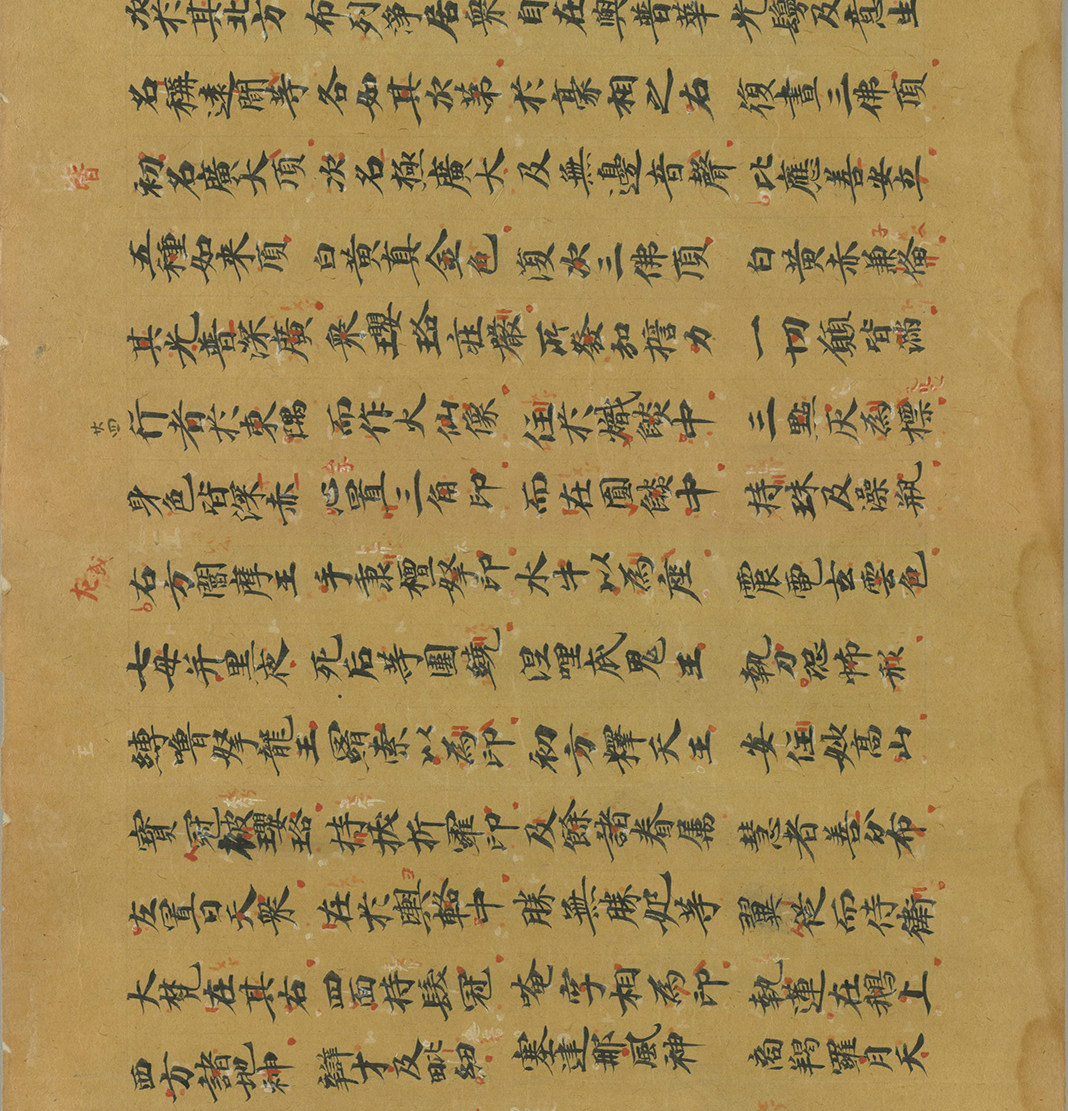 次於其北方 布列淨居衆 自在與普華 光鬘及意生
名稱遠聞等 各如其次第 於豪相之右 復畫三佛頂
初名廣大頂 次名極廣大 及無邊音聲 比應善安立
五種如来頂 白黄真金色 復次三佛頂 白黄赤兼備
其光普深廣 衆瓔珞莊嚴 所發弘誓力 一切願皆滿
廿四
行者於東隅 而作火仙像 住於熾燄中 三點灰為標
身色皆深赤 心置三角印 而在圓燄中 持珠及澡瓶
右方閻摩王 手秉檀拏印 水牛以為座 震電玄雲色
七母并黒夜 死后等圍繞 涅哩底鬼王 執刀恐怖形
縛嚕拏龍王 羂索以為印 初方釋天王 安住妙高山
寶冠被瓔珞 持拔折羅印 及餘諸眷属 慧者善分布
左置日天衆 在於輿輅中 勝無勝妃等 翼從而侍衛
大梵在其右 四面持髮冠 唵字相為印 執蓮在鵝上
西方諸地神 辯才及毗紐 塞建那風神 商羯羅月天